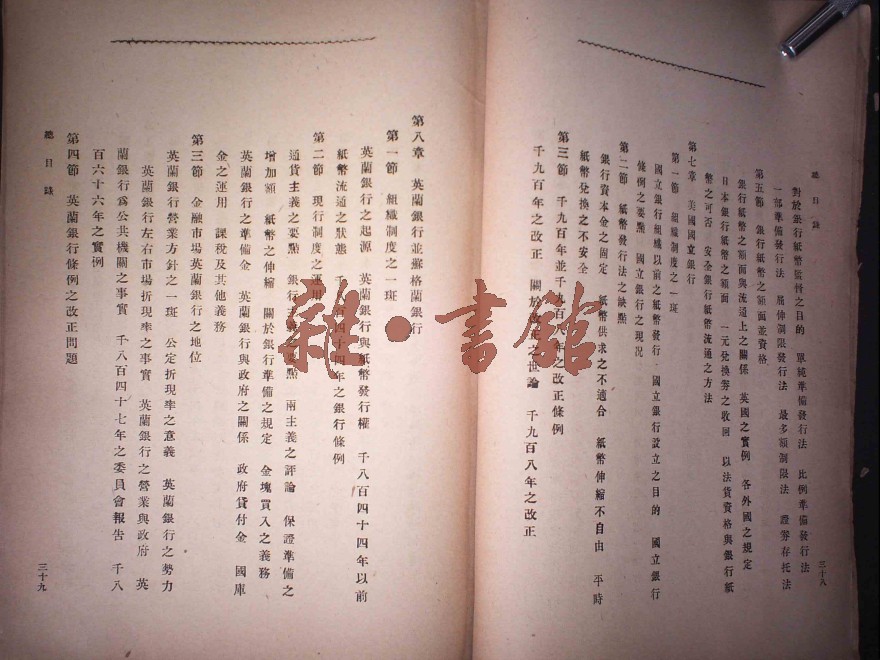 總目錄
三十八
對於銀行紙幣監督之目的 單純準備發行法 比例準備發行法
一部準備發行法 屈伸制限發行法 最多額制限法 證券存托法
第五節 銀行紙幣之額面並資格
銀行紙幣之額面與流通上之關係 英國之實例 各外國之規定
日本銀行紙幣之額面 一元兌換券之收回 以法貨資格與銀行紙
幣之可否 安全銀行紙幣流通之方法
第七章 美國國立銀行
第一節 組織制度之一斑
國立銀行組織以前之紙幣發行 國立銀行設立之目的 國立銀行
條例之要點 國立銀行之現況
第二節 紙幣發行法之缺點
銀行資本金之固定 紙幣供求之不適合 紙幣伸縮不自由 平時
紙幣兌換之不安全
第三節 千九百年並千九百八年之改正條例
千九百年之改正 關於改正之世論 千九百八年之改正
第八章 英蘭銀行並蘇格蘭銀行
第一節 組織制度之一斑
英蘭銀行之起源 英蘭銀行與紙幣發行權 千八百四十四年以前
紙幣流通之狀態 千八百四十四年之銀行條例
第二節 現行制度之運用
通貨主義之要點 銀行主義之要點 兩主義之評論 保證準備之
增加額 紙幣之伸縮 關於銀行準備之規定 金塊買入之義務
英蘭銀行之準備金 英蘭銀行與政府之關係 政府貸付金 國庫
金之運用 課稅及其他義務
第三節 金融市場英蘭銀行之地位
英蘭銀行營業方針之一斑 公定折現率之意義 英蘭銀行之勢力
英蘭銀行左右市場折現率之事實 英蘭銀行之營業與政府 英
蘭銀行爲公共機關之事實 千八百四十七年之委員會報告 千八
百六十六年之實例
第四節 英蘭銀行條例之改正問題
總目錄
三十九
雜·書館